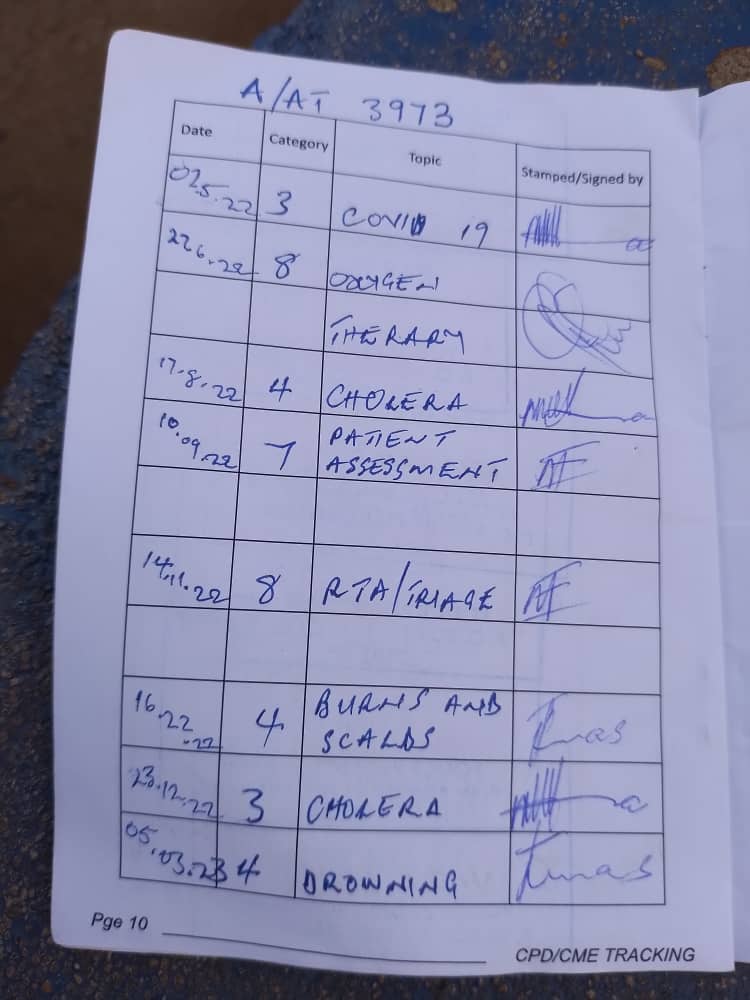 A/AT 3973
Date Category Topic Stamped/Signed by
02.5.22 3 COVID 19
22.6.22 8 OXYGEN
THERARY
17.8.22 4 CHOLERA
10.09.22 7 PATIENT
ASSESSMENT
14.11.22 8 RTA/TRIAGE
16.22.22 4 BURNS AND
SCALDS
23.12.22 3 CHOLERA
05.03.23 4 DROWNING
Pge 10
CPD/CME TRACKING